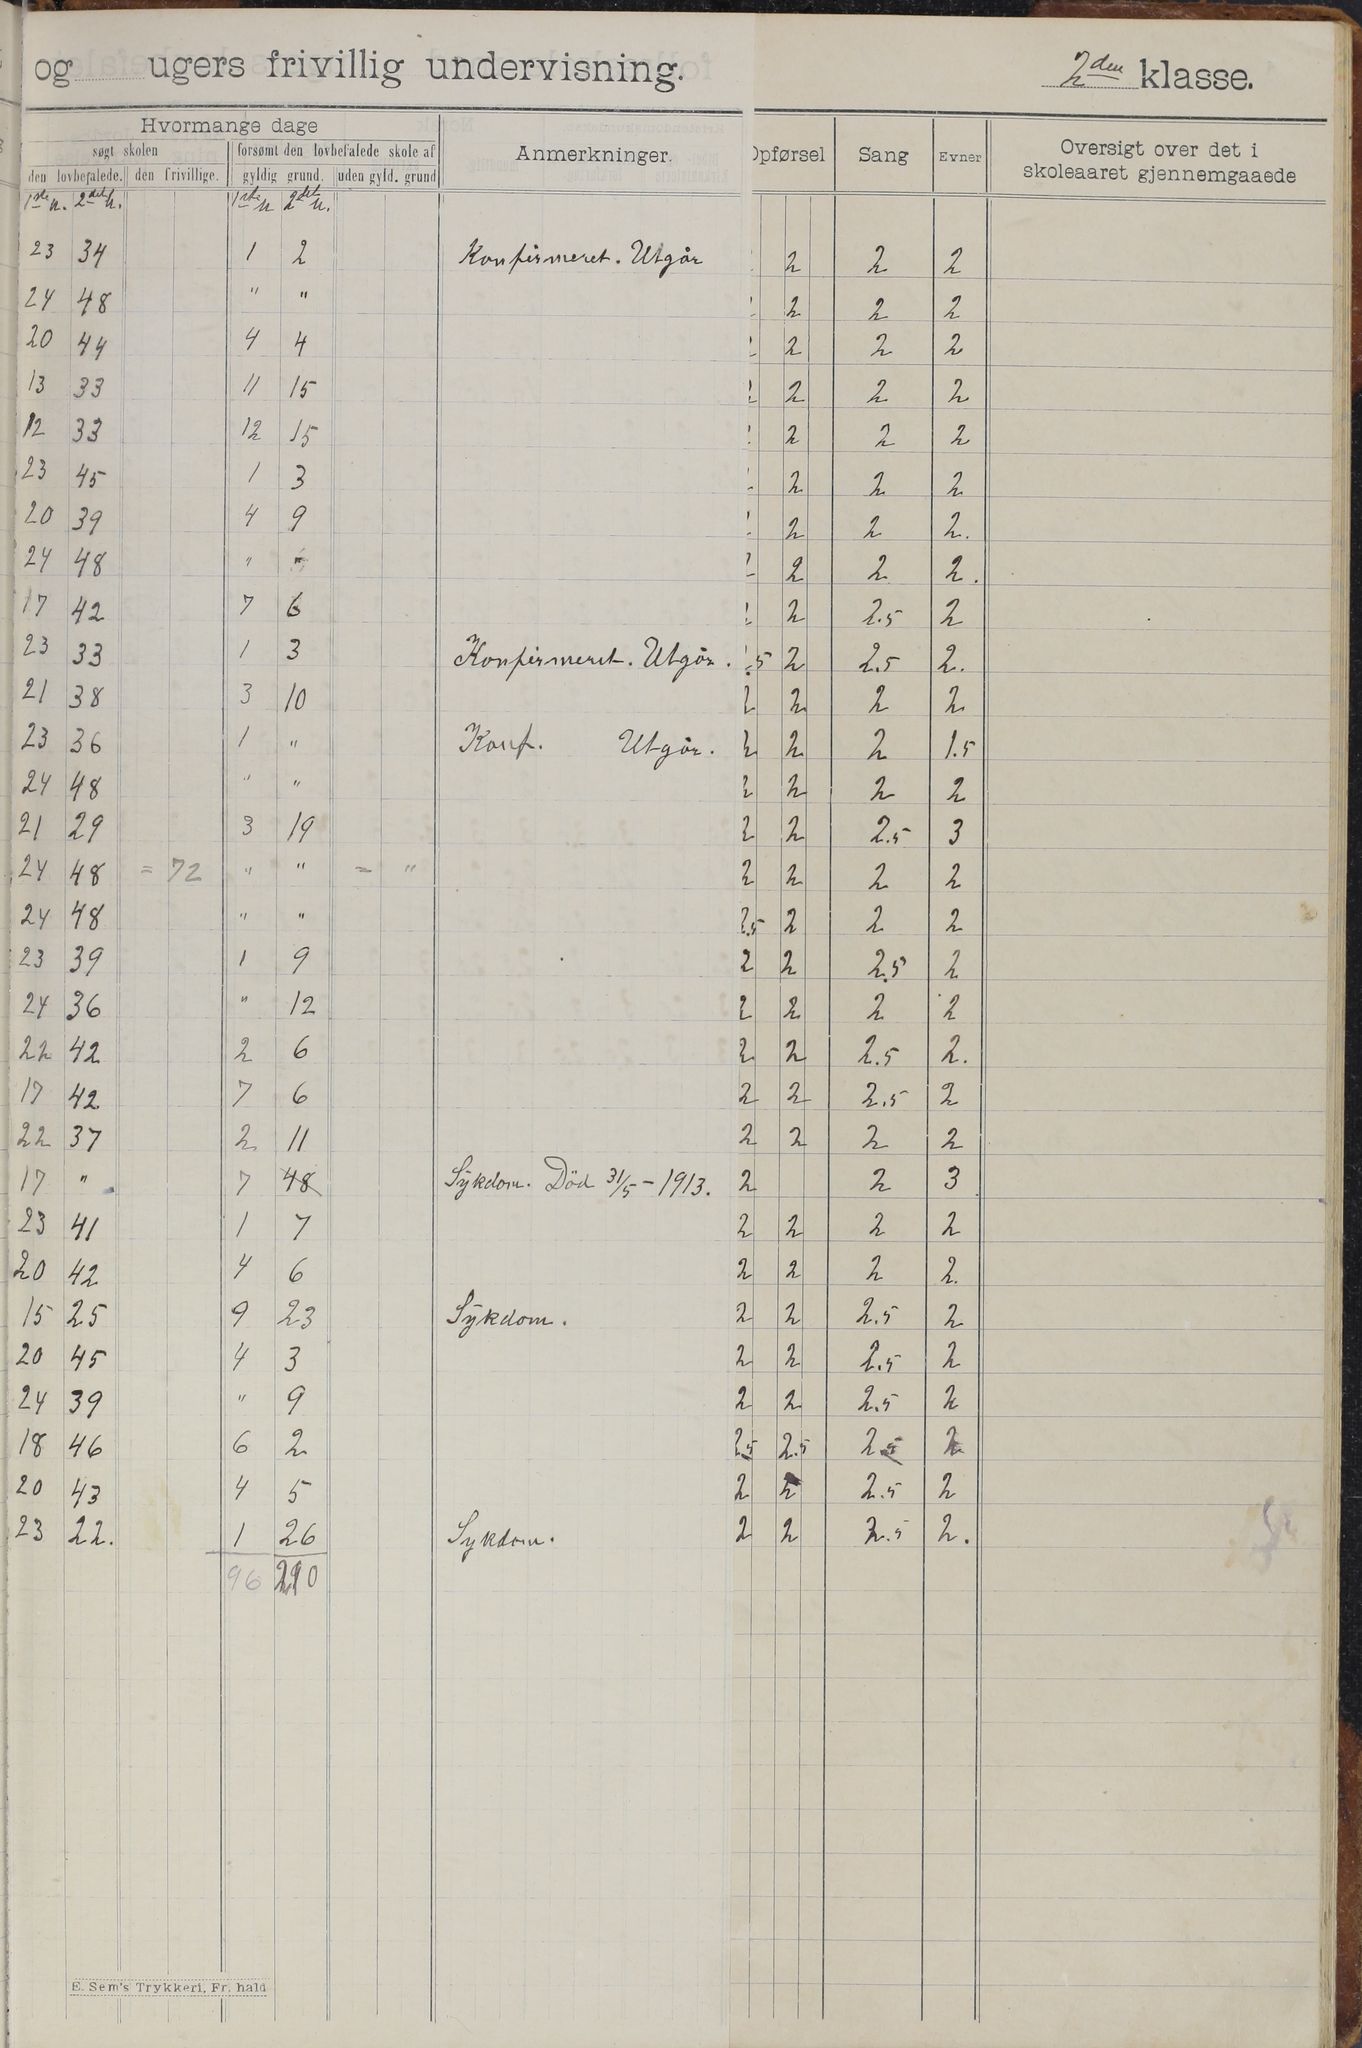 og ugers frivillig undervisning. 2den klasse.
Hvormange dage
søgt skolen forsømt den lovbefalede skole af Anmerkninger. Opførsel Sang Evner Oversigt over det i
den lovbefalede. den frivillige. gyldig grund. uden gyld. grund skoleaaret gjennemgaaede
1ste h. 2det h. 1ste h 2det h.
23 34 1 2 Konfirmeret. Utgår 2 2 2
24 48 " " 2 2 2
20 44 4 4 2 2 2
13 33 11 15 2 2 2
12 33 12 15 2 2 2
23 45 1 3 2 2 2
20 39 4 9 2 2 2.
24 48 " " 2 2 2.
17 42 7 6 2 2.5 2
23 33 1 3 Konfirmeret. Utgår. .5 2 2.5 2.
21 38 3 10 2 2 2 2
23 36 1 " Konf. Utgår. 2 2 2 1.5
24 48 " " 2 2 2 2
21 29 3 19 2 2 2.5 3
24 48 = 72 " " = " 2 2 2 2
24 48 " " 2.5 2 2 2
23 39 1 9 2 2 2.5 2
24 36 " 12 2 2 2 2
22 42 2 6 2 2 2.5 2.
17 42 7 6 2 2 2.5 2
22 37 2 11 2 2 2 2
17 " 7 48 Sykdom. Död 31/5 - 1913. 2 2 3
23 41 1 7 2 2 2 2
20 42 4 6 2 2 2 2.
15 25 9 23 Sykdom. 2 2 2.5 2
20 45 4 3 2 2 2.5 2
24 39 " 9 2 2 2.5 2
18 46 6 2 2.5 2.5 2.5 2
20 43 4 5 2 2 2.5 2
23 22. 1 26 Sykdom. 2 2 2.5 2.
96 290
E. Sem's Trykkeri, Fr. hald